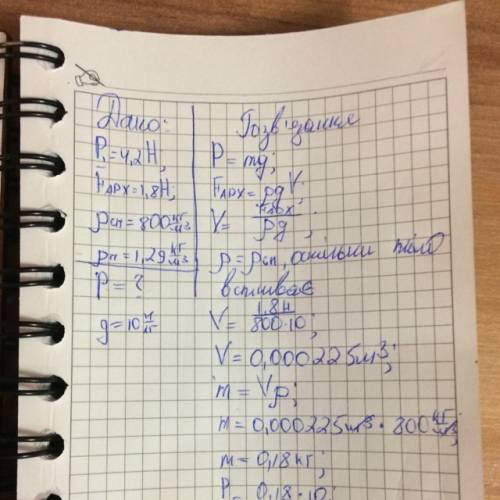 Дано:
P₁ = 4,2 Н;
Fарх = 1,8 Н;
ρсп = 800 кг/м³
ρп = 1,29 кг/м³
P = ?
g = 10 Н/кг
Розв'язання
P = mg;
Fарх = ρgV;
V = Fарх/ρg;
ρ = ρсп, оскільки тіло
вспливає
V = 1,8 Н/800·10;
V = 0,000225 м³;
m = Vρ;
m = 0,000225 м³ · 800 кг/м³;
m = 0,18 кг;
P = 0,18 · 10;